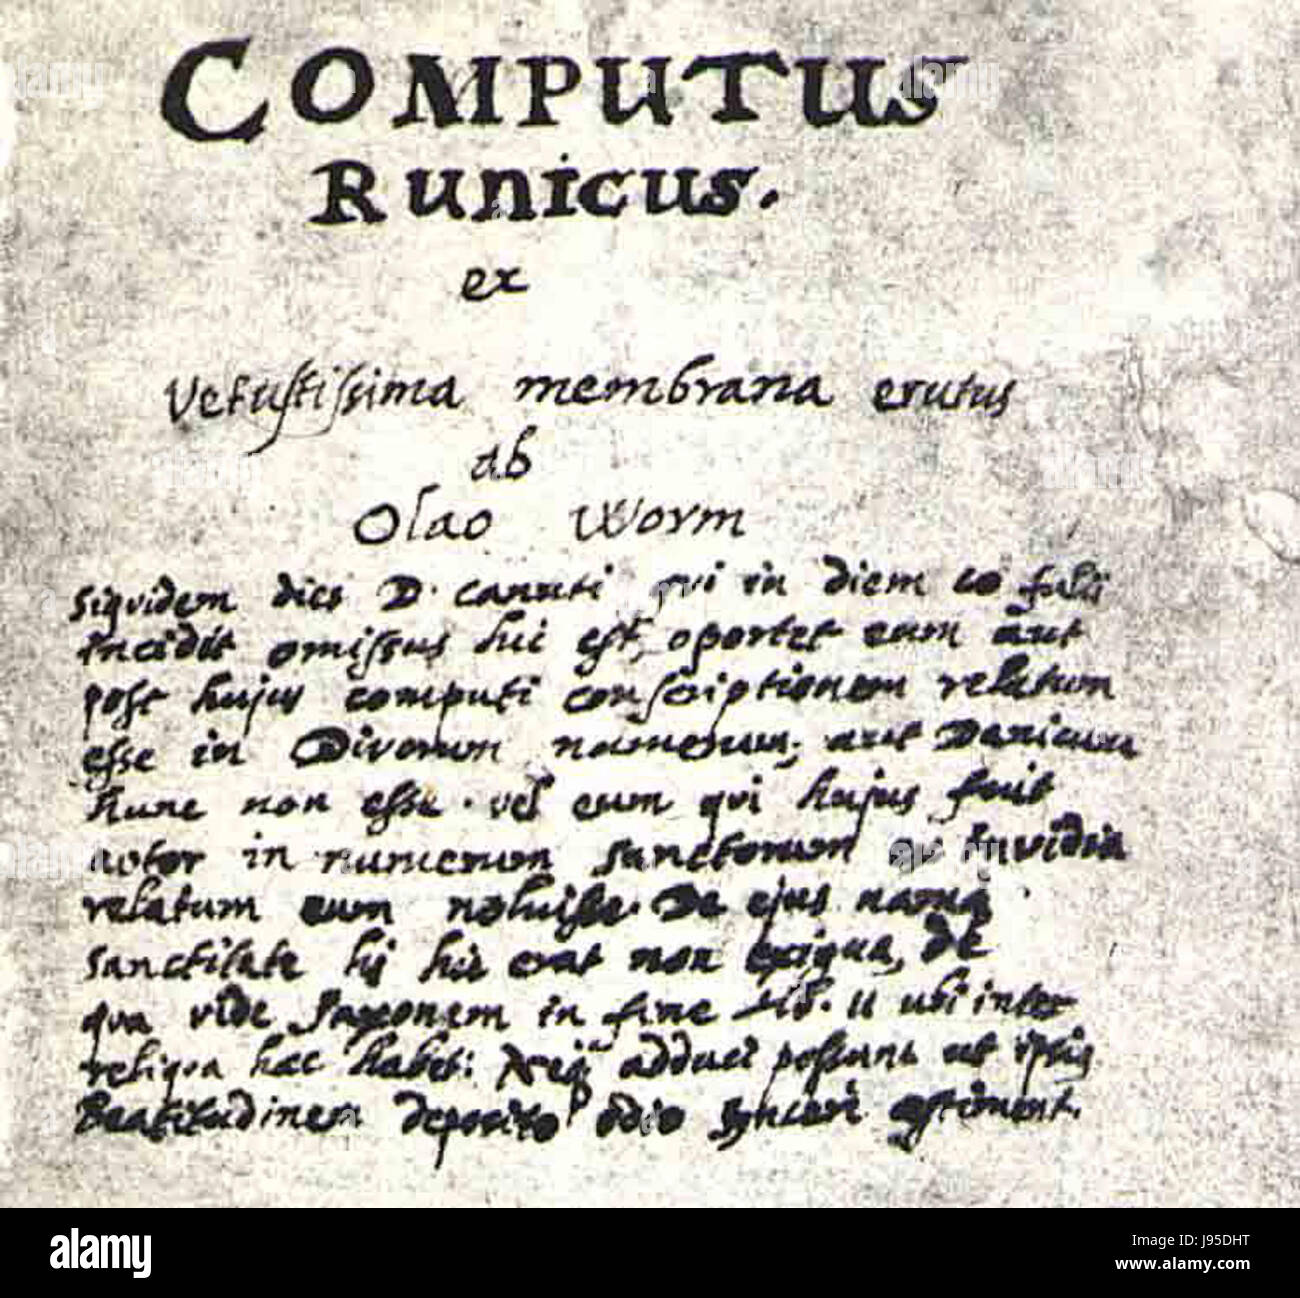 COMPUTUS
RUNICUS.
ex
Vetustissima membrana erutus
ab
Olao Worm
Siquidem dies D. Canuti qui in diem 10 Julii
incidit omissus hic est, oportet eum aut
post hujus computi conscriptionem relatum
esse in Divorum numerum, aut Danicum
hunc non esse. vel eum qui hujus fuit
autor in numerum sanctorum ex invidia
relatum eum noluisse. De ejus namq
sanctitate lis hic erat non exigua, de
qua vide Saxonem in fine Lib. 11 ubi inter
reliqua hæc habet: adduci possunt ut ipsius
Beatitudinem deposito odio estiment.
alamy
alamy
Image ID: J95DHT
www.alamy.com